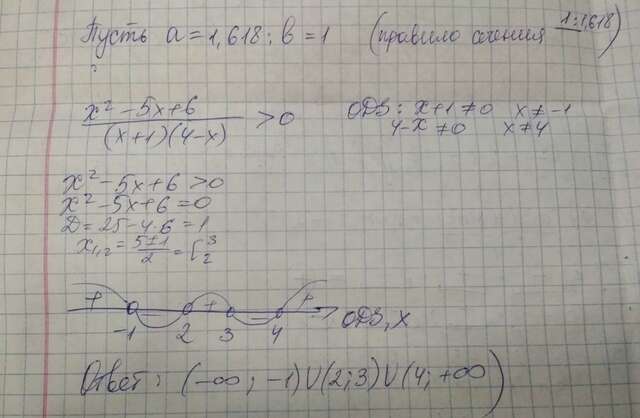 Пусть a = 1,618; b = 1 (правило сечения 1:1,618)
x² - 5x + 6 / (x+1)(4-x) > 0 ОДЗ: x+1 ≠ 0 x ≠ -1
4-x ≠ 0 x ≠ 4
x² - 5x + 6 > 0
x² - 5x + 6 = 0
D = 25 - 4·6 = 1
x₁,₂ = 5±1 / 2 = [ 3 2
+ - + - +
-1 2 3 4 ОДЗ, x
Ответ: (-∞; -1)∪(2; 3)∪(4; +∞)